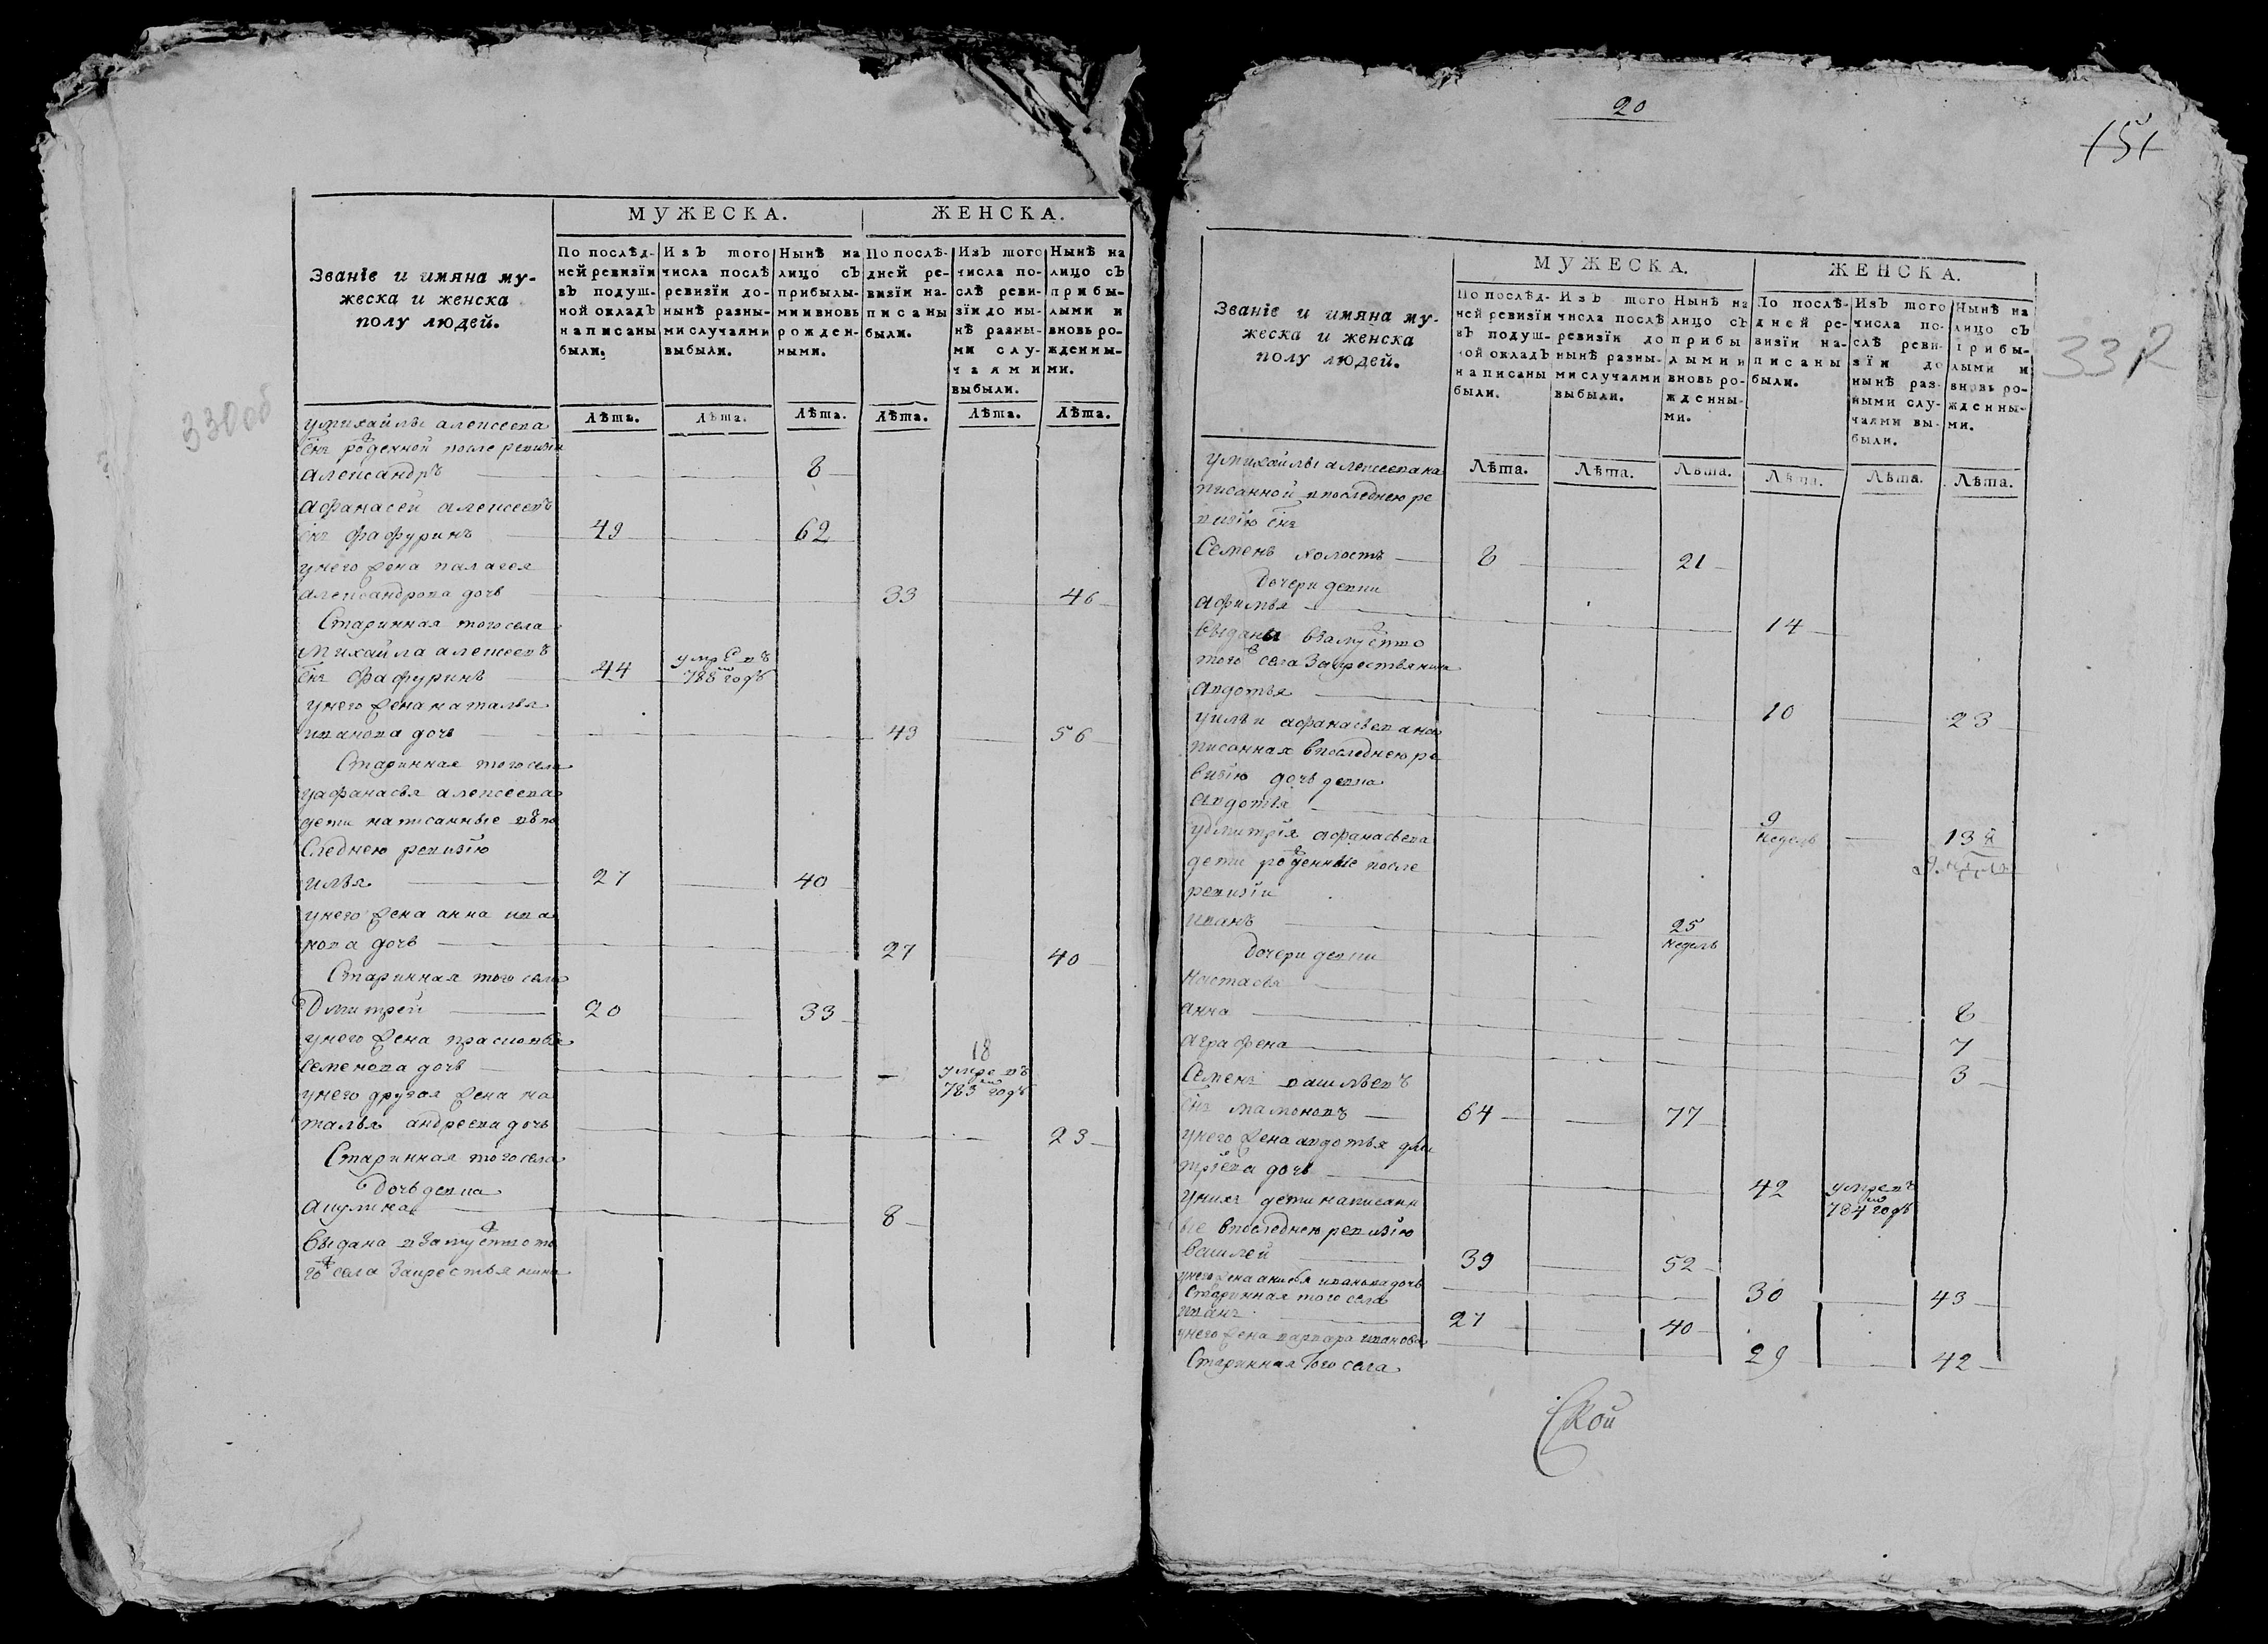 330об
МУЖЕСКА.
ЖЕНСКА.
Званіе и имяна му-
жеска и женска
полу людей.
По послѣд-
ней ревизіи
въ подуш-
ной окладъ
написаны
были.
Изъ того
числа послѣ
ревизіи до-
нынѣ разны-
ми случаями
выбыли.
Нынѣ на
лицо съ
прибылы-
ми и вновь
рожден-
ными.
По послѣ-
дней ре-
визіи на-
писаны
были.
Изъ того
числа по-
слѣ реви-
зіи до ны-
нѣ разны-
ми слу-
чаями
выбыли.
Нынѣ на
лицо съ
прибы-
лыми и
вновь ро-
жденны-
ми.
Лѣта. Лѣта. Лѣта. Лѣта. Лѣта. Лѣта.
умихайлы алексеева
снъ рожденной после ревизіи
александръ 8
афанасей алексеевъ
снъ фафуринъ 49 62
унего жена палагея
александрова дочь 33 46
Старинная того села
михайла алексеевъ
снъ фафуринъ 44 умрѣ въ 788м годѣ
унего жена наталья
иванова дочь 43 56
Старинная того села
уафанасья алексеева
дети написанные въ по
следнею ревизію
илья 27 40
унего жена анна ива
нова дочь 27 40
Старинная того села
Дмитрей 20 33
унего жена прасковья
семенова дочь 18 умре въ 783м годѣ
унего другая жена на
талья андреева дочь 23
Старинная того села
Дочь девка
акулина 8
Выдана взамужство то
гож села закрестьянина
20
151
33R
МУЖЕСКА.
ЖЕНСКА.
Званіе и имяна му-
жеска и женска
полу людей.
По послѣд-
ней ревизіи
въ подуш-
ной окладъ
написаны
были.
Изъ того
числа послѣ
ревизіи до
нынѣ разны-
ми случаями
выбыли.
Нынѣ на
лицо съ
прибы
лыми и
вновь ро-
жденны-
ми.
По послѣ-
дней ре-
визіи на-
писаны
были.
Изъ того
числа по-
слѣ реви-
зіи до
нынѣ раз-
ными слу-
чаями вы-
были.
Нынѣ на
лицо съ
прибы-
лыми и
вновь ро-
жденны-
ми.
Лѣта. Лѣта. Лѣта. Лѣта. Лѣта. Лѣта.
умихайлы алексеева на
писанной впоследнею ре
визію снъ
Семенъ холостъ 8 21
Дочери девки
афимья 14
Выдана взамужство
тогож села закрестьянина
авдотья 10 23
уильи афанасьева на
писанная впоследнею ре
визію дочь девка
авдотья 9 недель 13
удмитрія афанасьева
дети рожденные после
ревизіи
иванъ 25 недель
Дочери девки
настасья 8
анна 7
аграфена 3
Семенъ васильевъ
снъ мамоновъ 64 77
унего жена авдотья дми
тріева дочь 42 умре въ 784м годѣ
уних дети написанн
ые впоследнею ревизію
василей 39 52
унего жена анисья иванова дочь 30 43
Старинная того села
иванъ 27 40
унего жена варвара иванова 29 42
Старинная того села
Ской